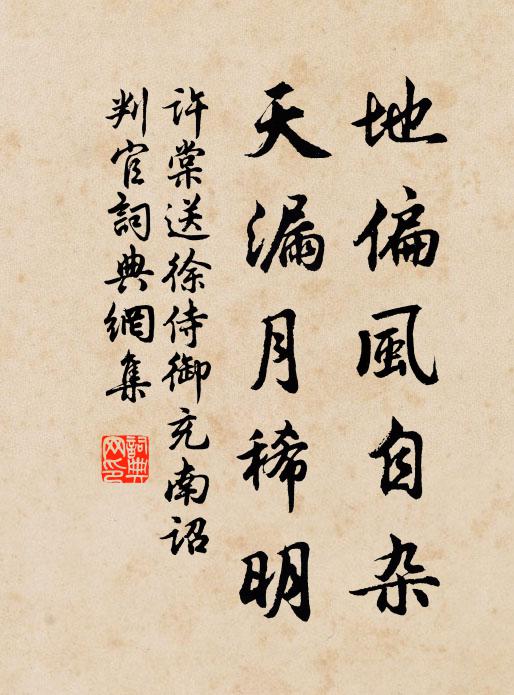 地偏風自杂
天漏月稀明
許棠送徐侍御充南詔
判官詞典網集
詞典
网印